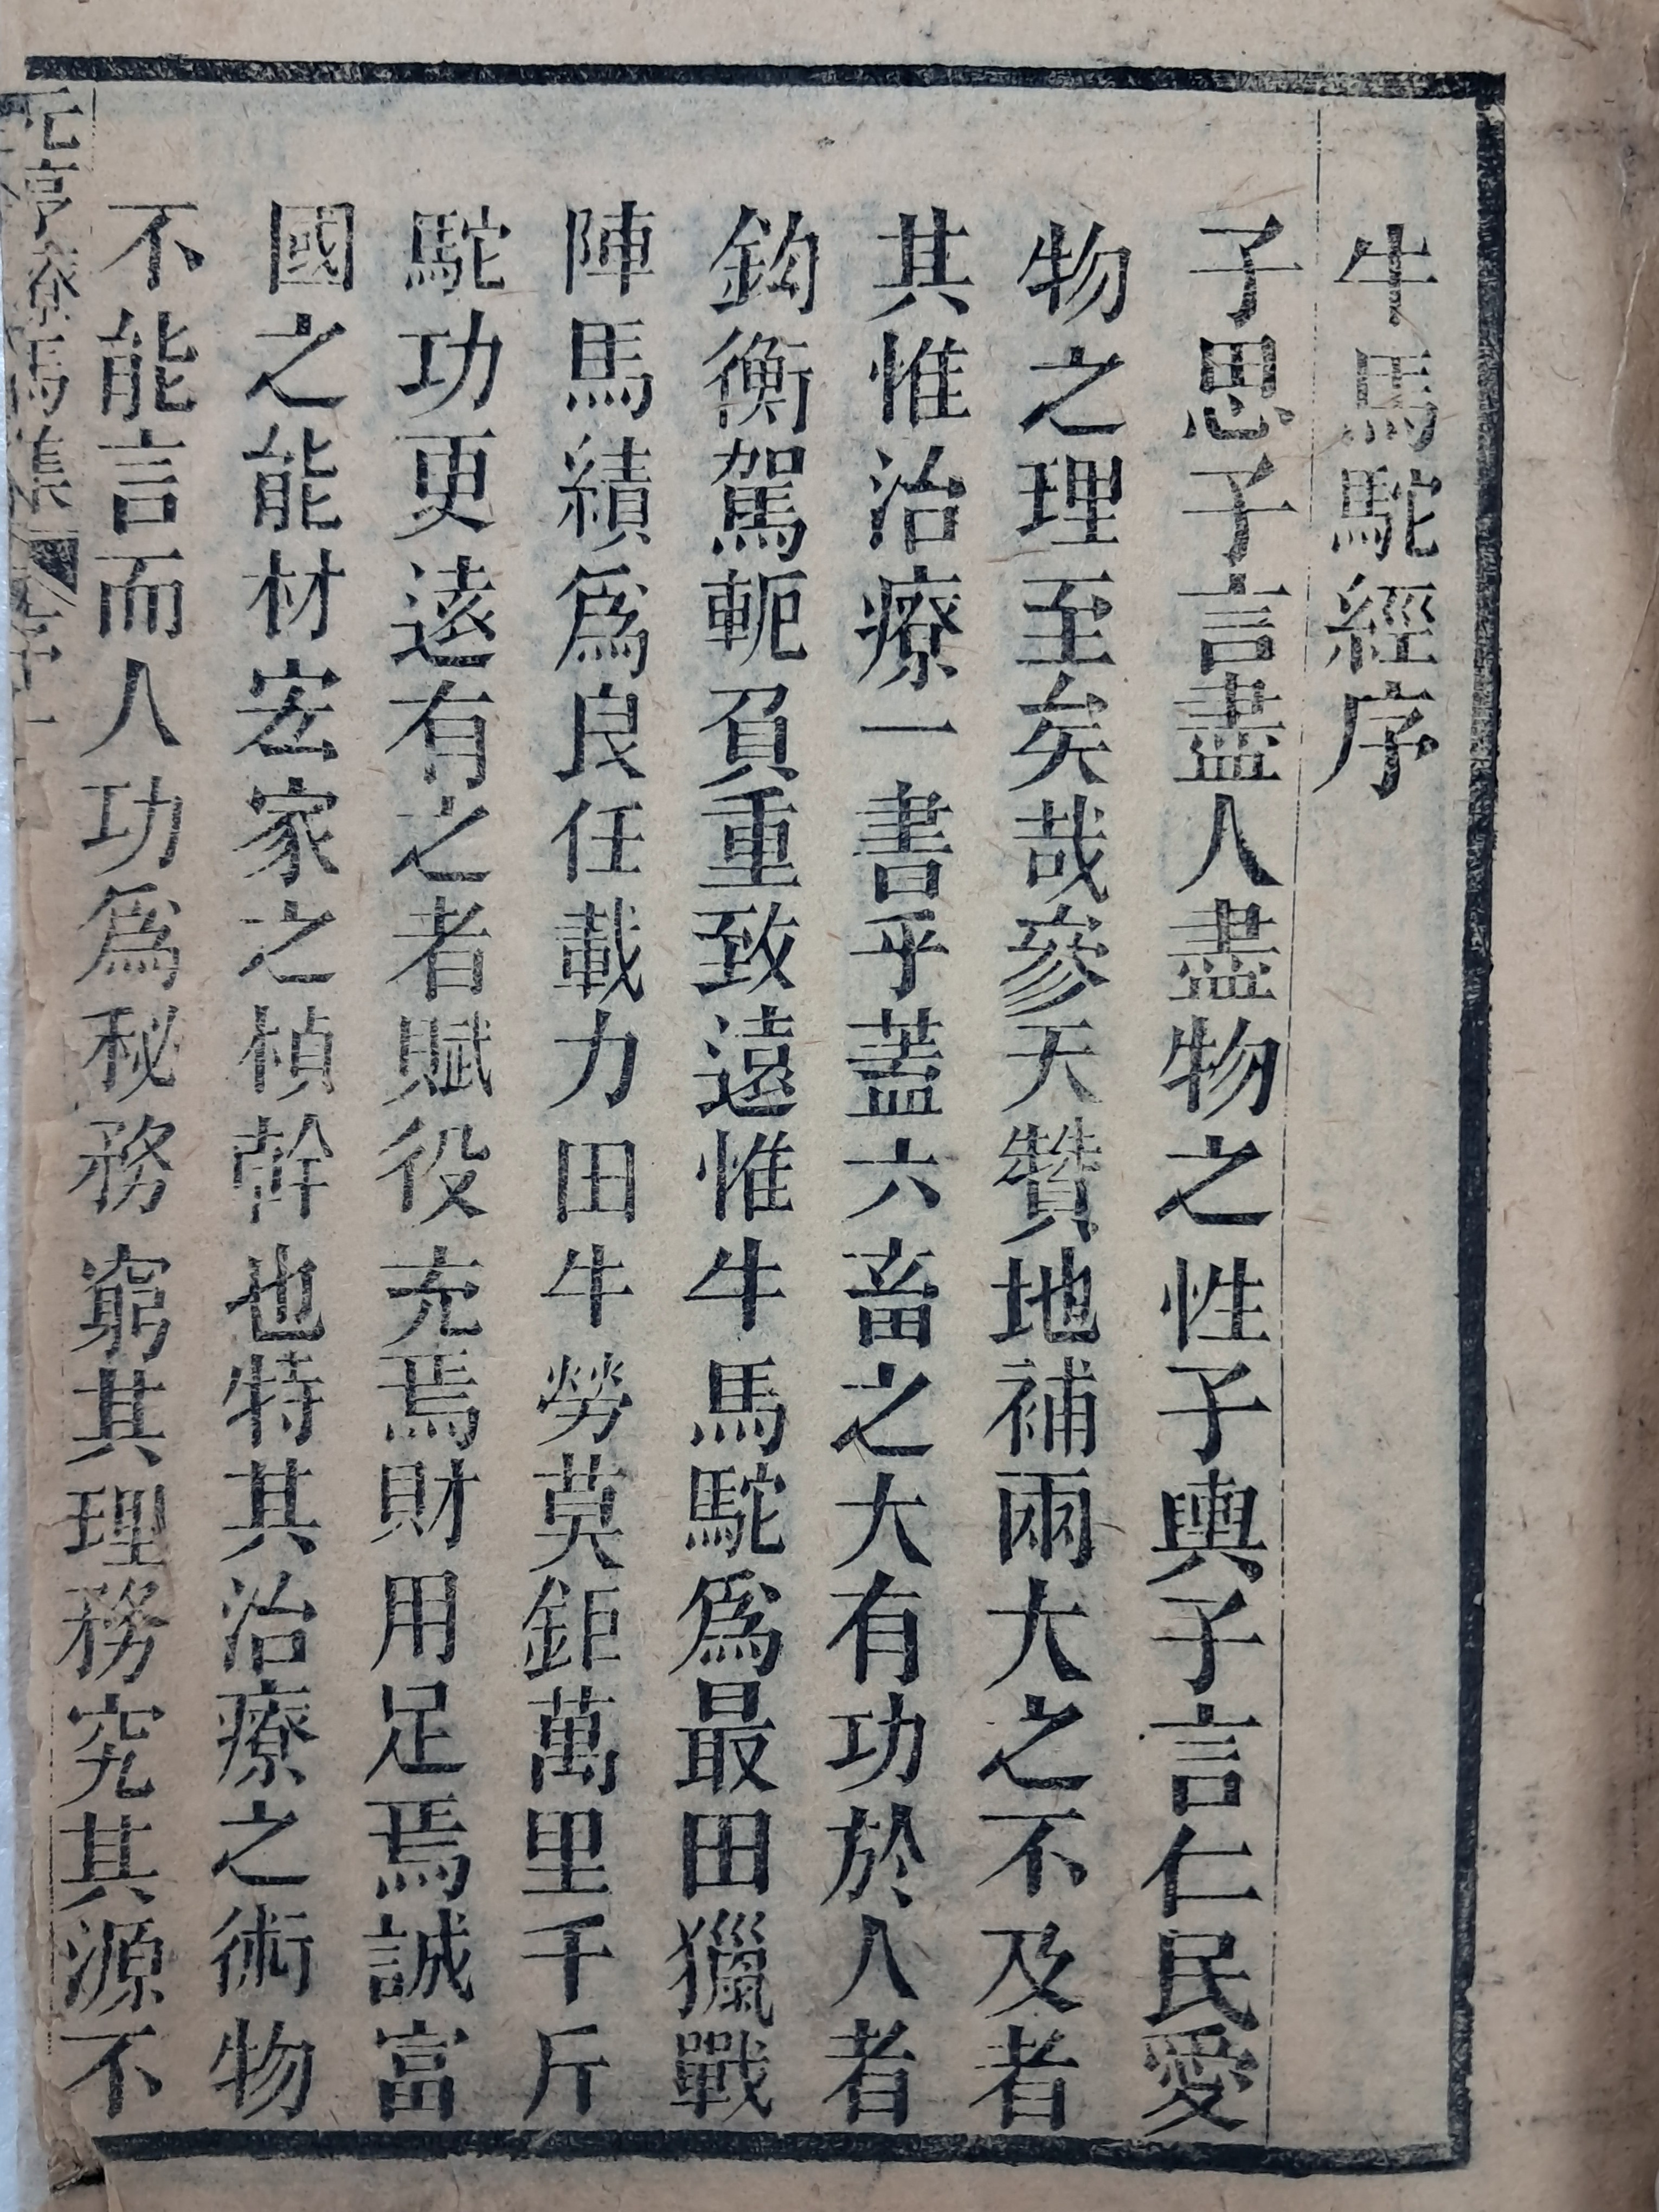 牛馬駝經序
子思子言盡人盡物之性子輿子言仁民愛
物之理至矣哉參天贊地補兩大之不及者
其惟治療一書乎蓋六畜之大有功於人者
鈎衡駕軛負重致遠惟牛馬駝爲最田獵戰
陣馬績爲良任載力田牛勞莫鉅萬里千斤
駝功更遠有之者賦役充焉財用足焉誠富
國之能材宏家之楨幹也特其治療之術物
不能言而人功爲秘務窮其理務究其源不
元亨療馬集 序 一